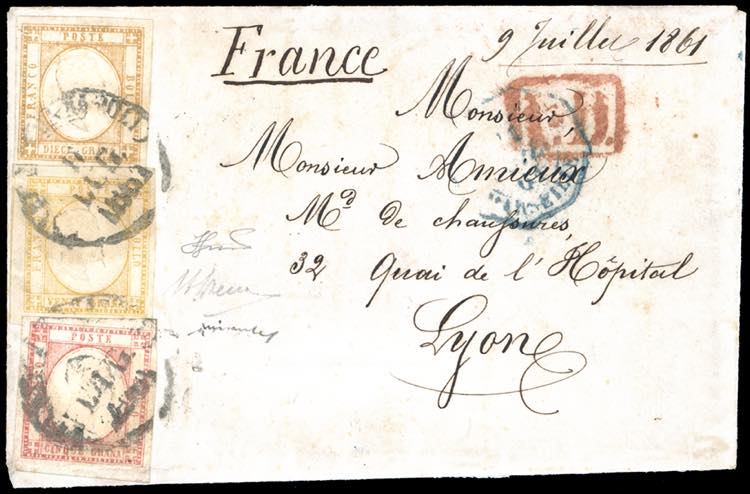 France
9 Juillet 1861
Monsieur,
Monsieur Amieux
Md de chaussures,
32 Quai de l'Hôpital
Lyon
P.D.
POSTE
FRANCO
BOLLO
DIECI GRANA
FRANCO
BOLLO
POSTE
CINQUE GRANA